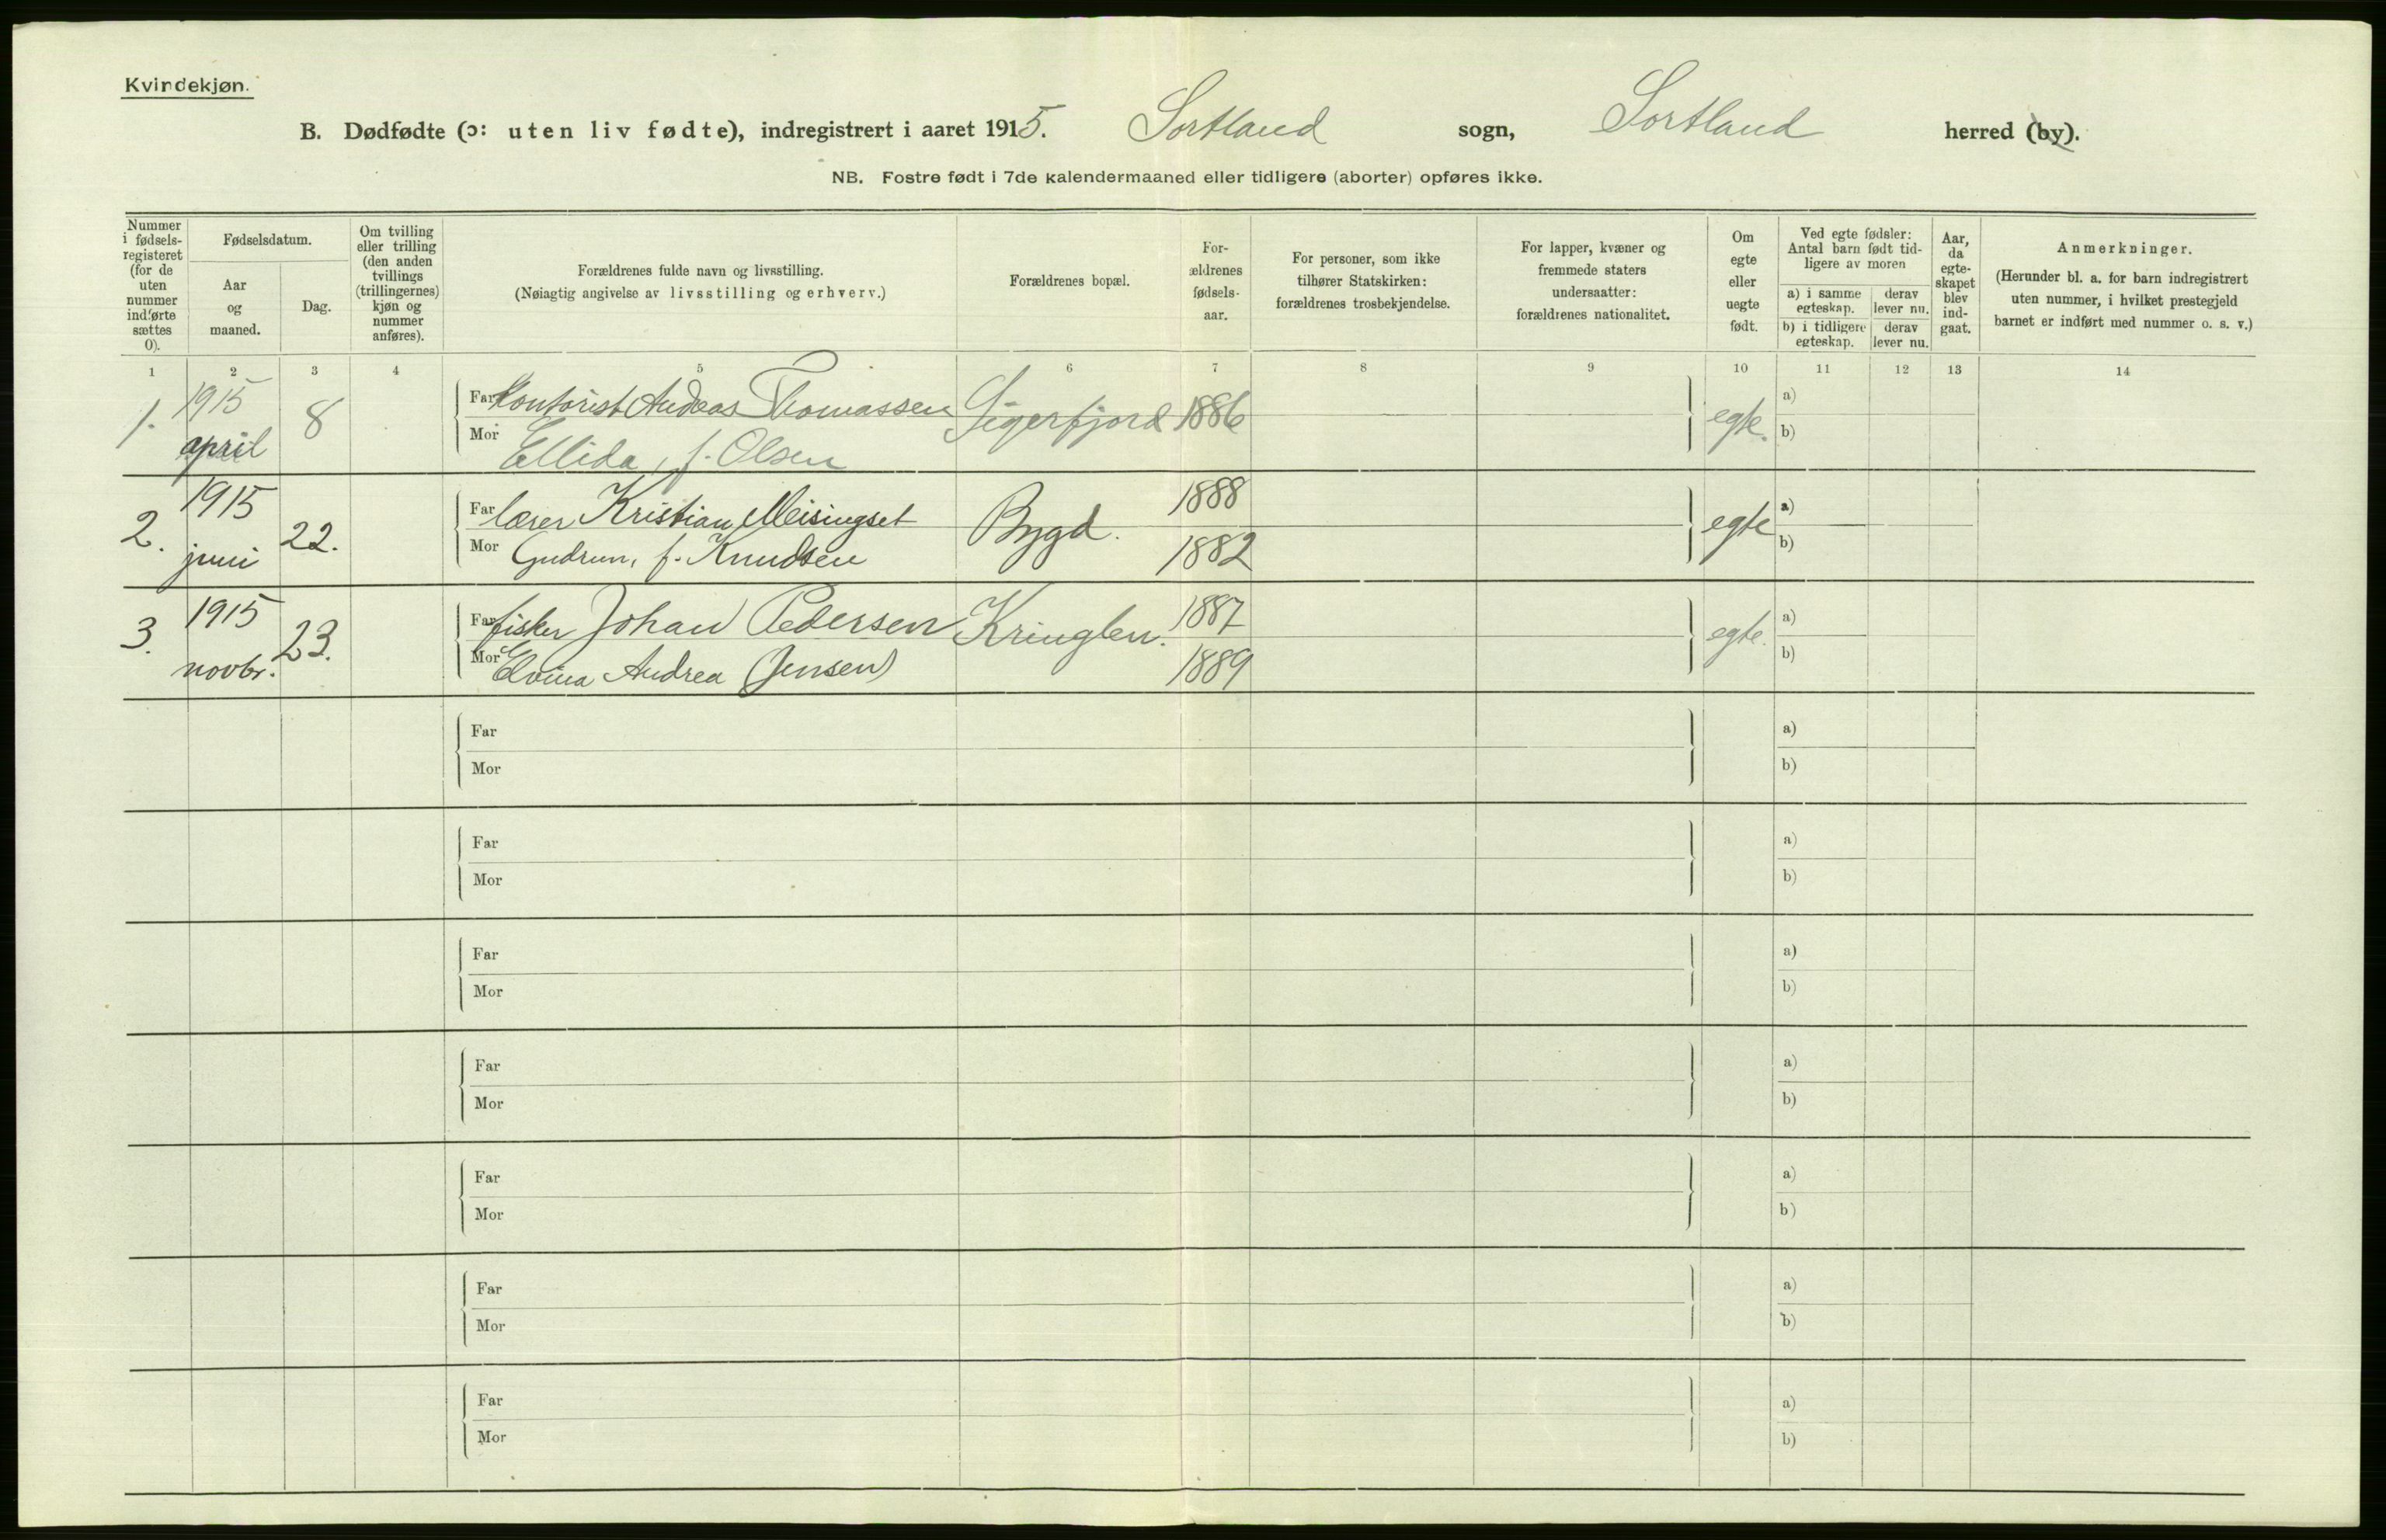 Kvindekjøn.
B. Dødfødte (ɔ: uten liv fødte), indregistrert i aaret 1915. Sortland sogn, Sortland herred (by).
NB. Fostre født i 7de kalendermaaned eller tidligere (aborter) opføres ikke.
Nummer i fødsels-registeret (for de uten nummer indførte sættes 0).
Fødselsdatum.
Aar og maaned.
Dag.
Om tvilling eller trilling (den anden tvillings (trillingernes) kjøn og nummer anføres).
Forældrenes fulde navn og livsstilling.
(Nøiagtig angivelse av livsstilling og erhverv.)
Forældrenes bopæl.
For-ældrenes fødsels-aar.
For personer, som ikke tilhører Statskirken: forældrenes trosbekjendelse.
For lapper, kvæner og fremmede staters undersaatter: forældrenes nationalitet.
Om egte eller uegte født.
Ved egte fødsler: Antal barn født tid-ligere av moren
a) i samme egteskap.
derav lever nu.
b) i tidligere egteskap.
derav lever nu.
Aar, da egte-skapet blev ind-gaat.
Anmerkninger.
(Herunder bl. a. for barn indregistrert uten nummer, i hvilket prestegjeld barnet er indført med nummer o. s. v.)
1 2 3 4 5 6 7 8 9 10 11 12 13 14
1. 1915 april 8 Far Kontorist Andreas Thomassen Sigerfjord 1886 egte. a)
Mor Ellida, f. Olsen b)
2. 1915 juni 22. Far lærer Kristian Meisingset Bygd. 1888 egte a)
Mor Gudrun, f. Knudsen 1882 b)
3. 1915 novbr. 23. Far fisker Johan Pedersen Kringlen. 1887 egte. a)
Mor Elvina Andrea (Jensen) 1889 b)
Far a)
Mor b)
Far a)
Mor b)
Far a)
Mor b)
Far a)
Mor b)
Far a)
Mor b)
Far a)
Mor b)
Far a)
Mor b)